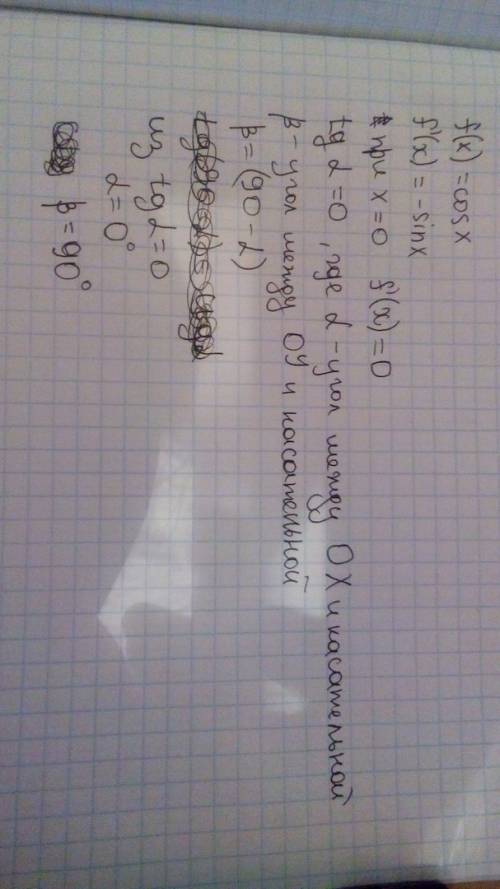 f(x) = cos x
f'(x) = -sin x
при x = 0 f'(x) = 0
tg α = 0, где α - угол между OX и касательной
β - угол между OY и касательной
β = (90 - α)
из tg α = 0
α = 0°
β = 90°